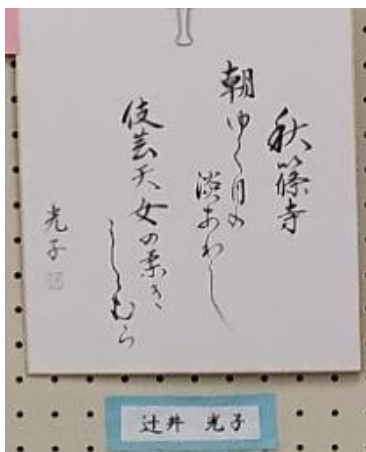 秋篠寺
朝ゆく月の
淡あわし
伎芸天女の柔き
しゝむら
光子
辻井 光子